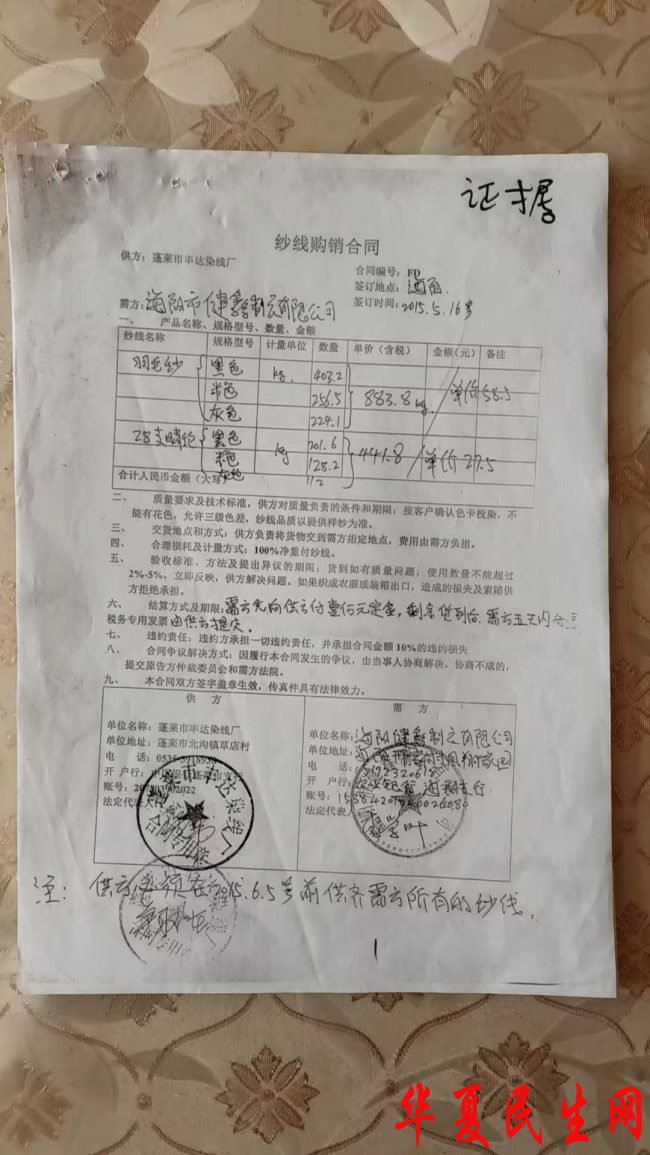 证据
纱线购销合同
供方：蓬莱市丰达染线厂
合同编号：FD
签订地点：海阳
需方：海阳市健鑫制衣有限公司
签订时间：2015.5.16号
一、 产品名称、规格型号、数量、金额
纱线名称 规格型号 计量单位 数量 单价（含税） 金额（元） 备注
羽毛纱 黑色 kg. 403.2
米色 256.5 883.8 kg. 单价58.5
灰色 224.1
28支晴纶 黑色 kg 201.6
米色 128.2 441.8 单价27.5
灰色 112
合计人民币金额（大写）
二、 质量要求及技术标准，供方对质量负责的条件和期限：按客户确认色卡投染，不
能有花色，允许三级色差，纱线品质以提供样纱为准。
三、 交货地点和方式：供方负责将货物交到需方指定地点，费用由需方负担。
四、 合理损耗及计量方式：100%净重付纱线。
五、 验收标准、方法及提出异议的期限：货到如有质量问题，使用数量不能超过
2%-5%，立即反映，供方解决问题。如果织成衣服或装箱出口，造成的损失及索赔供
方拒绝承担。
六、 结算方式及期限：需方先向供方付壹仟元定金，剩余货到后，需方五天内
税务专用发票由供方提供。
七、 违约责任：违约方承担一切违约责任，并承担合同金额10%的违约损失
八、 合同争议解决方式：因履行本合同发生的争议，由当事人协商解决，协商不成的，
提交原告方仲裁委员会和需方法院。
九、 本合同双方签字盖章生效，传真件具有法律效力。
供 方
单位名称：蓬莱市丰达染线厂
单位地址：蓬莱市北沟镇草店村
电 话：0535-
开 户 行：
账号：
法定代表人
蓬莱市丰达染线厂
合同专用章
需 方
单位名称：海阳健鑫制衣有限公司
单位地址：
电 话：
开 户 行：
账号：
法定代表人
注：供方必须在2015.6.5号前供齐需方所有的纱线。
1
华夏民生网